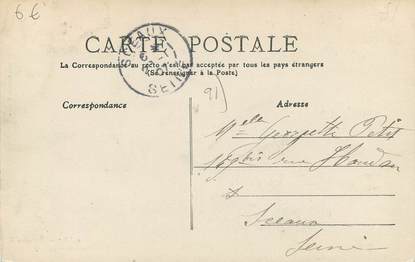 6€
SCEAUX
SEINE
CARTE POSTALE
La Correspondance au recto n'est pas acceptée par tous les pays étrangers
(Se renseigner à la Poste)
91
Correspondance
Adresse
Melle Georgette
rue Houdan
à
Sceaux
Seine